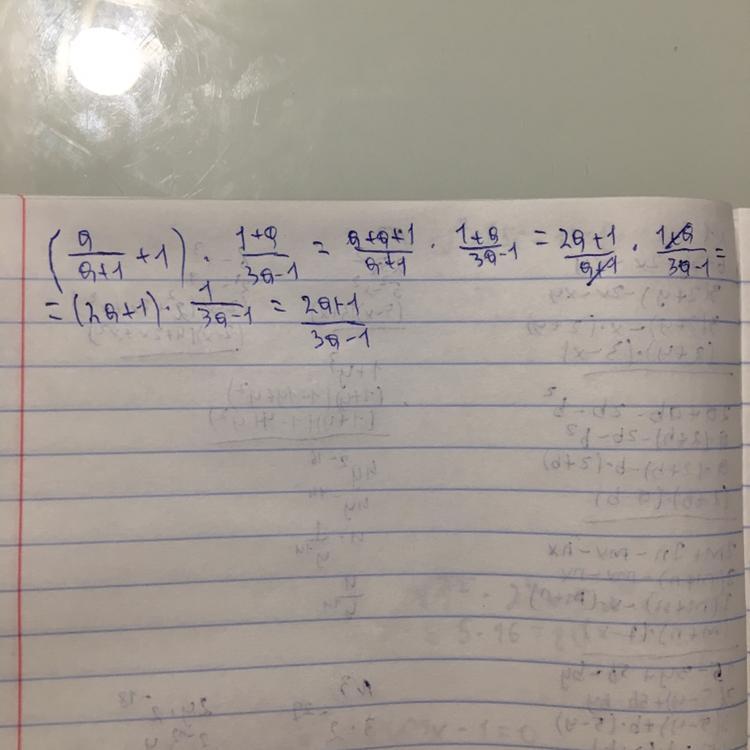 (a/(a+1) + 1) · (1+a)/(3a-1) = (a+a+1)/(a+1) · (1+a)/(3a-1) = (2a+1)/(a+1) · (1+a)/(3a-1) =
= (2a+1) · 1/(3a-1) = (2a+1)/(3a-1)